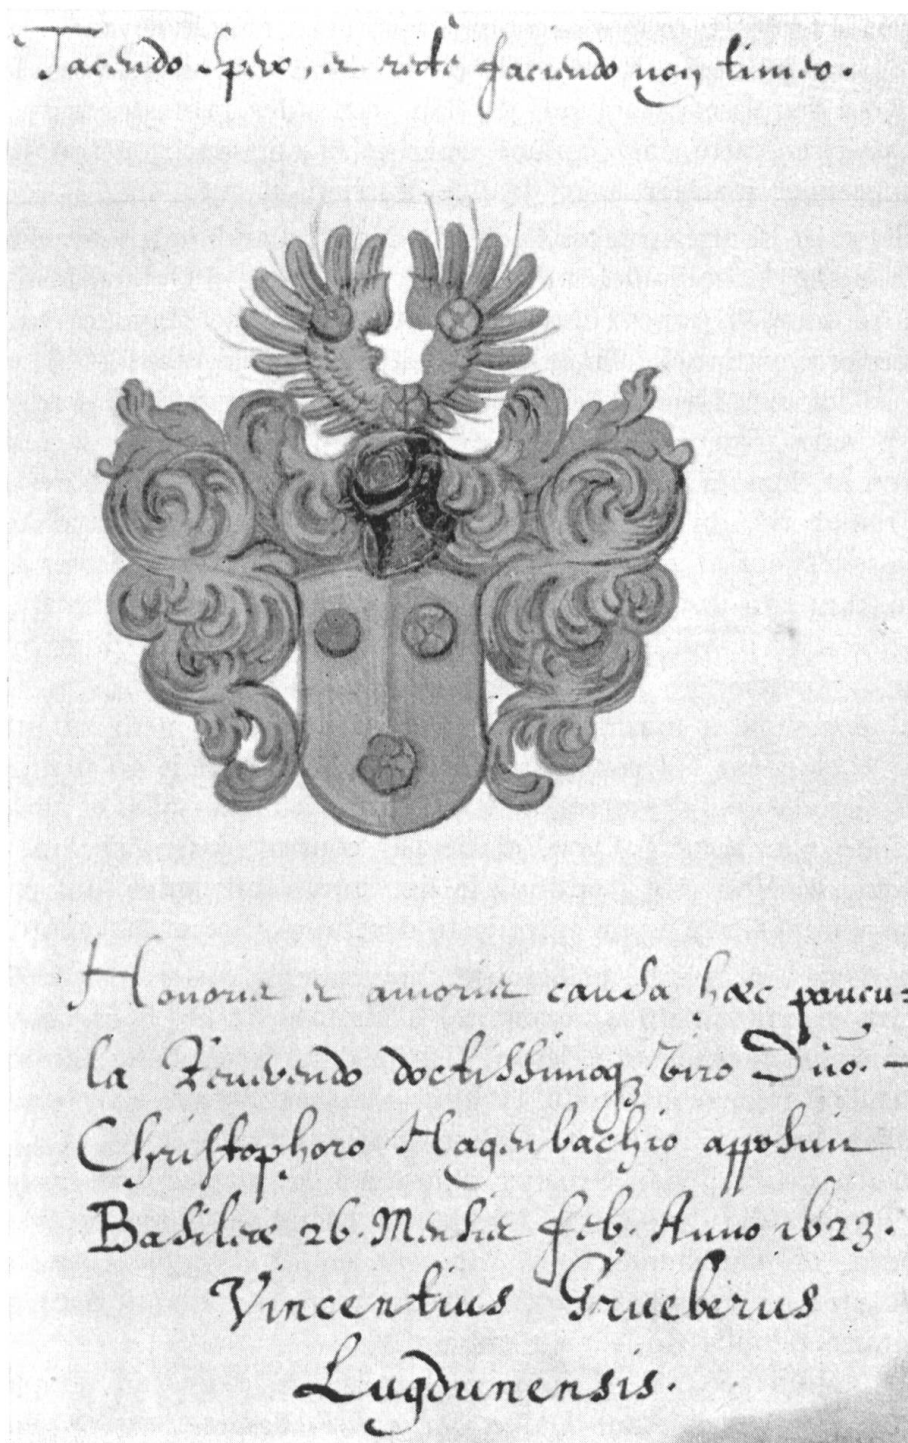 Tacendo Spero, et recte faciendo non timeo.
Honoris et amoris causa hæc paucu=
la Reverendo doctissimoq; viro Dno.
Christophoro Hagenbachio apposuit
Basileæ 26. Mensis feb. Anno 1623.
Vincentius Grueberus
Lugdunensis.